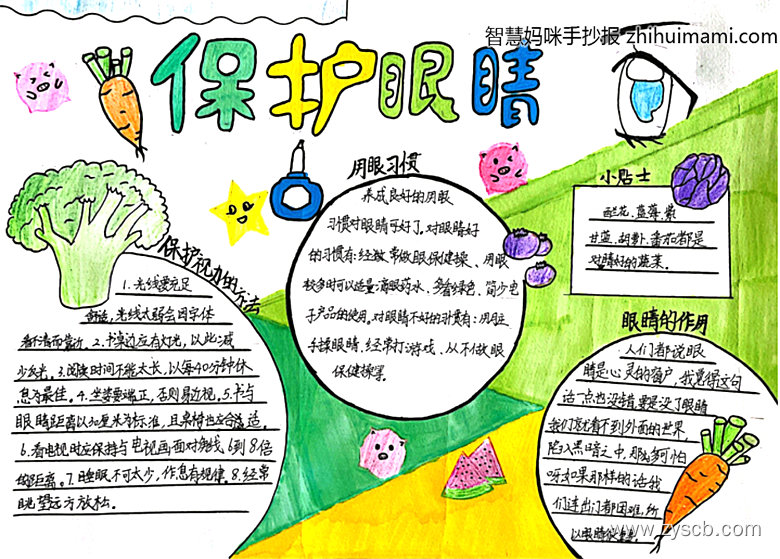 智慧妈咪手抄报 zhihuimami.com
保护眼睛
保护视力的方法
1.光线要充足
舒适,光线太弱会因字体
看不清而靠近。2.书桌边应有灯光,以此减
少反光。3.阅读时间不能太长,以每40分钟休
息为最佳。4.坐姿要端正,否则易近视。5.书与
眼睛距离以30厘米为标准,且桌椅也应合适
6.看电视时应保持与电视画面对角线,6到8倍
的距离。7.睡眠不可太少,作息有规律。8.经常
眺望远方放松。
用眼习惯
养成良好的用眼
习惯对眼睛可好了,对眼睛好
的习惯有:经常做眼保健操、用眼
较多时可以适量滴眼药水、多看绿色、简少电
子产品的使用。对眼睛不好的习惯有:用脏
手揉眼睛、经常打游戏、从不做眼
保健操等。
小贴士
菊花、蓝莓、紫
甘蓝、胡萝卜、番茄都是
对睛好的蔬菜。
眼睛的作用
人们都说眼
睛是心灵的窗户,我觉得这句
话一点也没错,要是没了眼睛
我们就看不到外面的世界,
陷入黑暗之中,那么多可怕
呀如果那样的话我
们连出门都困难,所
以眼睛很重要。
www.zyscb.com